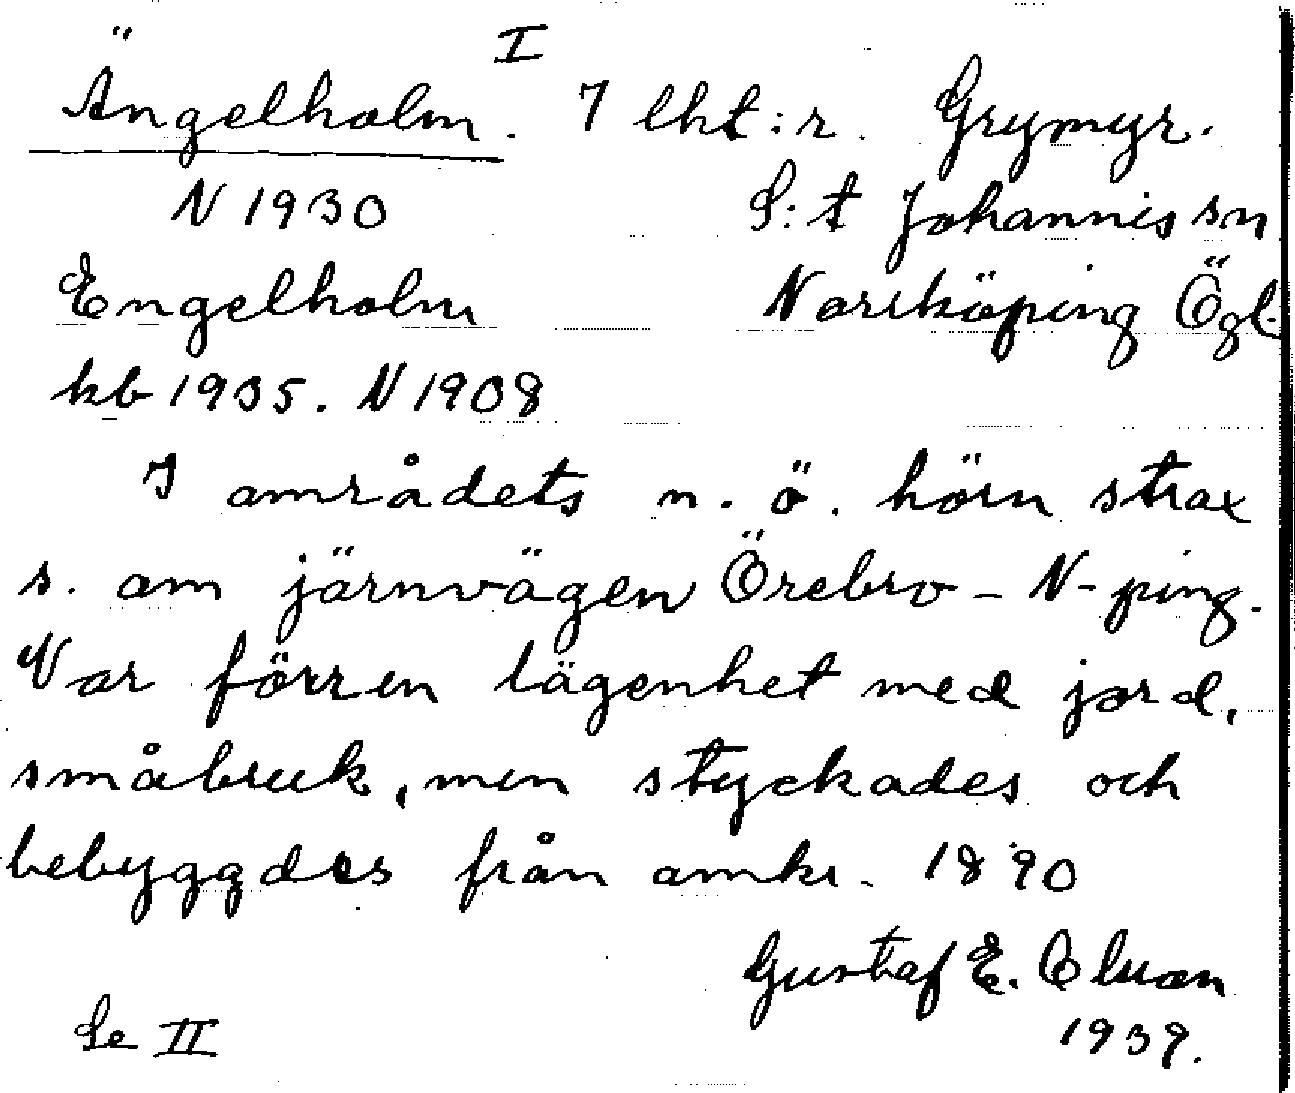 I
Ängelholm. 7 lht:r. Grymyr.
N 1930 S:t Johannis sn
Engelholm Norrköping Ögl.
kb 1935. N 1908
I områdets n. ö. hörn strax
s. om järnvägen Örebro - N-ping.
Var förr en lägenhet med jord,
småbruk, men styckades och
bebyggdes från omkr. 1890
Gustaf E.
Se II 1939.